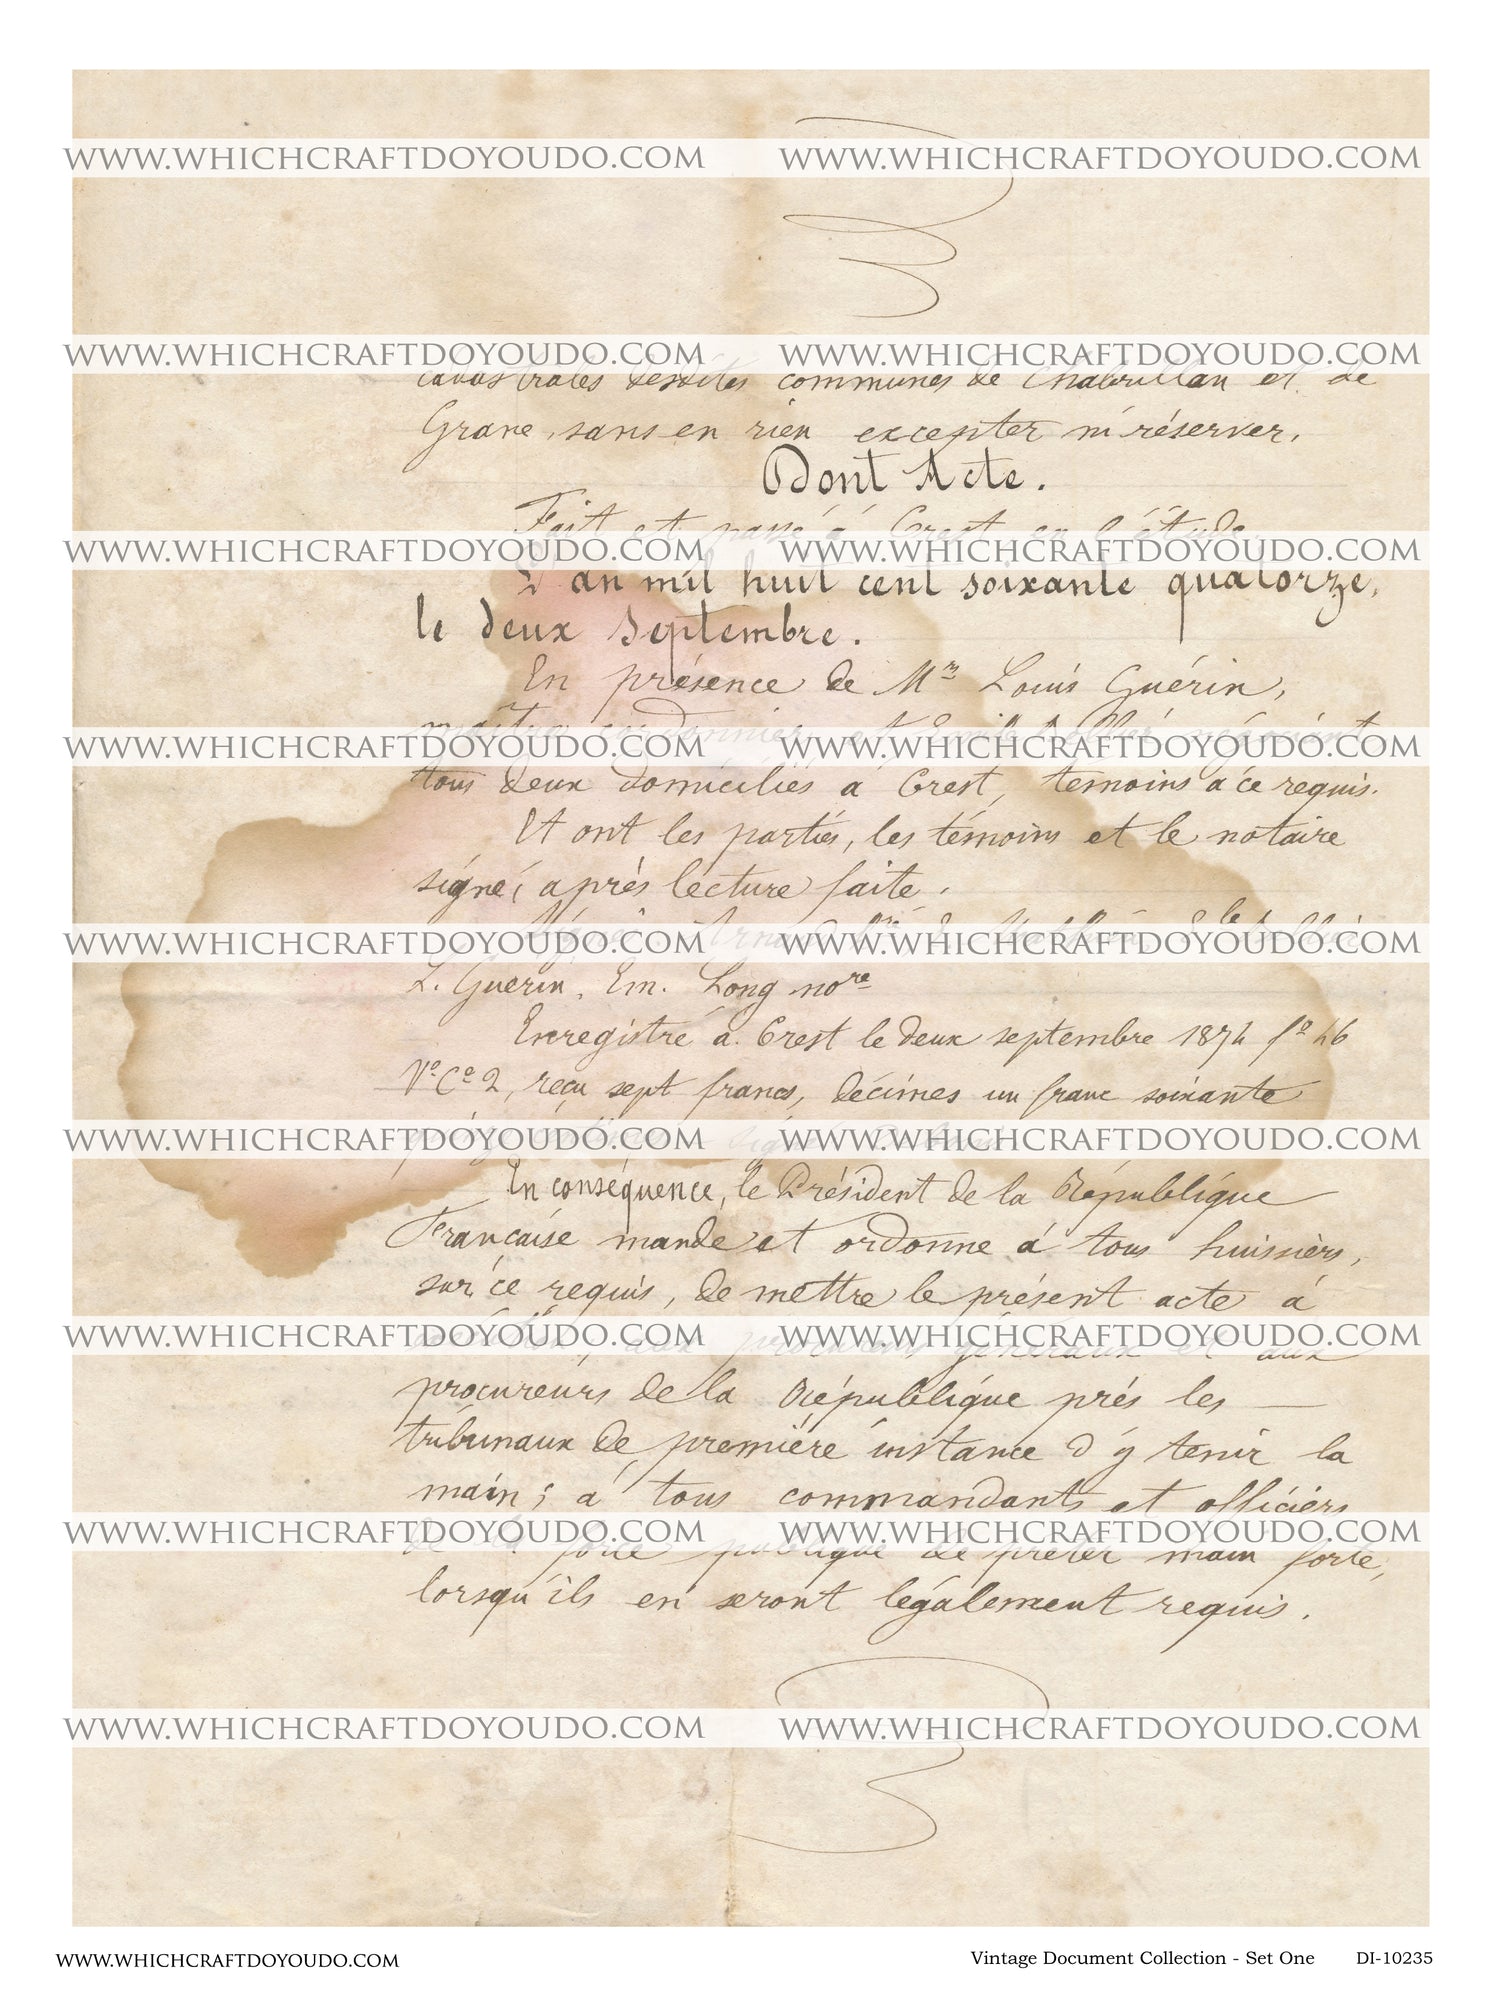 WWW.WHICHCRAFTDOYOUDO.COM WWW.WHICHCRAFTDOYOUDO.COM
WWW.WHICHCRAFTDOYOUDO.COM WWW.WHICHCRAFTDOYOUDO.COM
cadastrales desdites communes de Chabrillan et de
Grane, sans en rien excepter ni réserver.
Dont Acte.
Fait et passé à Crest en l'étude.
WWW.WHICHCRAFTDOYOUDO.COM WWW.WHICHCRAFTDOYOUDO.COM
L'an mil huit cent soixante quatorze,
le deux Septembre.
En présence de Mr Louis Guérin,
maître cordonnier, et Emile négociant
WWW.WHICHCRAFTDOYOUDO.COM WWW.WHICHCRAFTDOYOUDO.COM
tous deux domiciliés à Crest, témoins à ce requis.
Et ont les parties, les témoins et le notaire
signé, après lecture faite.
Signé:
WWW.WHICHCRAFTDOYOUDO.COM WWW.WHICHCRAFTDOYOUDO.COM
L. Guérin, Em. Long nore
Enregistré à Crest le deux septembre 1874 fo 46
Vo Co 2, reçu sept francs, décimes un franc soixante
WWW.WHICHCRAFTDOYOUDO.COM WWW.WHICHCRAFTDOYOUDO.COM
En conséquence, le Président de la République
Française mande et ordonne à tous huissiers,
sur ce requis, de mettre le présent acte à
WWW.WHICHCRAFTDOYOUDO.COM WWW.WHICHCRAFTDOYOUDO.COM
aux procureurs généraux et aux
procureurs de la République près les
tribunaux de première instance d'y tenir la
main; à tous commandants et officiers
WWW.WHICHCRAFTDOYOUDO.COM WWW.WHICHCRAFTDOYOUDO.COM
de la force publique de prêter main forte,
lorsqu'ils en seront légalement requis.
WWW.WHICHCRAFTDOYOUDO.COM WWW.WHICHCRAFTDOYOUDO.COM
WWW.WHICHCRAFTDOYOUDO.COM Vintage Document Collection - Set One DI-10235